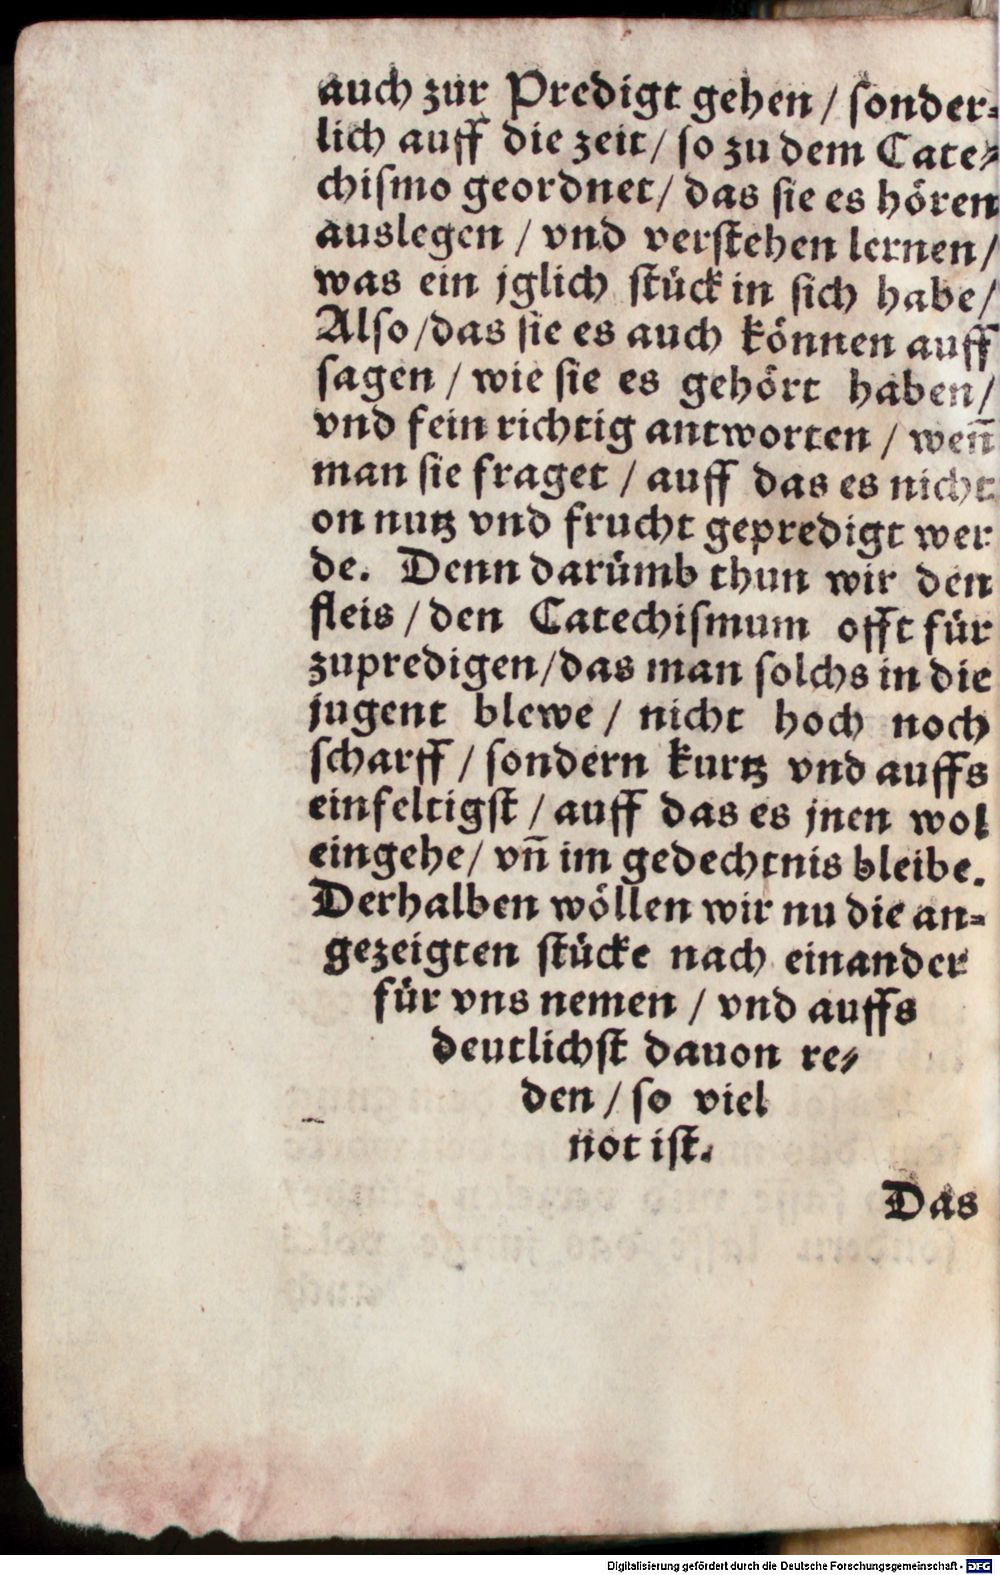 auch zur Predigt gehen / ſonder⸗
lich auff die zeit / ſo zu dem Cate⸗
chiſmo geordnet / das ſie es hören
auslegen / vnd verſtehen lernen /
was ein jglich ſtück in ſich habe /
Alſo / das ſie es auch können auff
ſagen / wie ſie es gehört haben /
vnd fein richtig antworten / weñ
man ſie fraget / auff das es nicht
on nutz vnd frucht gepredigt wer
de. Denn darümb thun wir den
fleis / den Catechiſmum offt für
zupredigen / das man ſolchs in die
jugent blewe / nicht hoch noch
ſcharff / ſondern kurtz vnd auffs
einfeltigſt / auff das es jnen wol
eingehe / vñ im gedechtnis bleibe.
Derhalben wöllen wir nu die an⸗
gezeigten ſtücke nach einander
für vns nemen / vnd auffs
deutlichſt dauon re⸗
den / ſo viel
not iſt.
Das
Digitalisierung gefördert durch die Deutsche Forschungsgemeinschaft - DFG